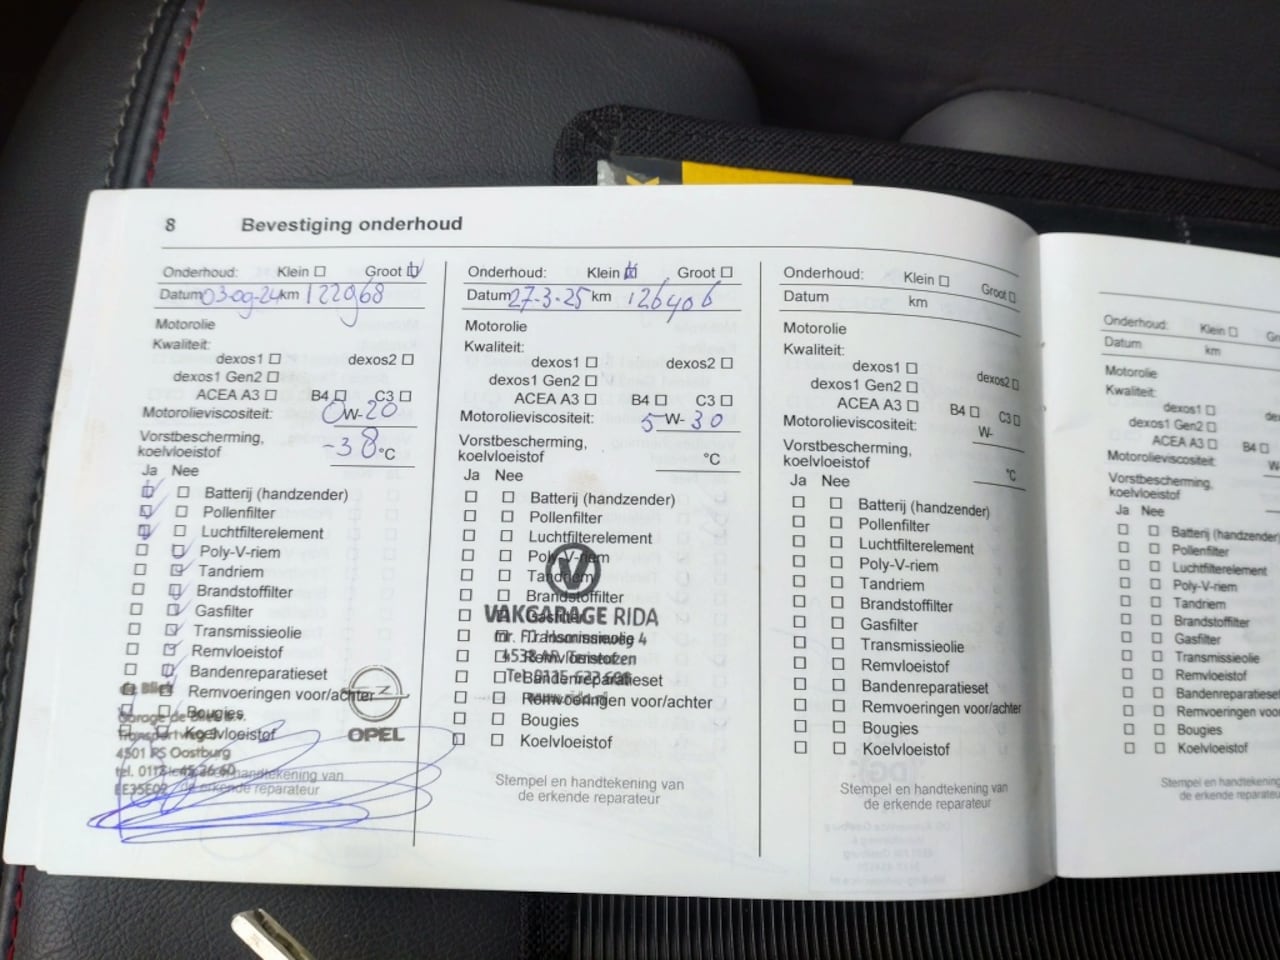 8 Bevestiging onderhoud
Onderhoud: Klein Groot
Datum 03-09-24 km 122968
Motorolie
Kwaliteit:
dexos1 dexos2
dexos1 Gen2
ACEA A3 B4 C3
Motorolieviscositeit: 0W-20
Vorstbescherming,
koelvloeistof -38 °C
Ja Nee
Batterij (handzender)
Pollenfilter
Luchtfilterelement
Poly-V-riem
Tandriem
Brandstoffilter
Gasfilter
Transmissieolie
Remvloeistof
Bandenreparatieset
Remvoeringen voor/achter
Bougies
Koelvloeistof
OPEL
Garage de Blieck b.v.
4501 PS Oostburg
tel. 0117 - 45 26 60
handtekening van
de erkende reparateur
Onderhoud: Klein Groot
Datum 27-3-25 km 126406
Motorolie
Kwaliteit:
dexos1 dexos2
dexos1 Gen2
ACEA A3 B4 C3
Motorolieviscositeit: 5W-30
Vorstbescherming,
koelvloeistof °C
Ja Nee
Batterij (handzender)
Pollenfilter
Luchtfilterelement
Poly-V-riem
Tandriem
Brandstoffilter
VAKGARAGE RIDA
Gasfilter
Transmissieolie
Remvloeistof
Bandenreparatieset
Remvoeringen voor/achter
Bougies
Koelvloeistof
Stempel en handtekening van
de erkende reparateur
Onderhoud: Klein Groot
Datum km
Motorolie
Kwaliteit:
dexos1 dexos2
dexos1 Gen2
ACEA A3 B4 C3
Motorolieviscositeit: W-
Vorstbescherming,
koelvloeistof °C
Ja Nee
Batterij (handzender)
Pollenfilter
Luchtfilterelement
Poly-V-riem
Tandriem
Brandstoffilter
Gasfilter
Transmissieolie
Remvloeistof
Bandenreparatieset
Remvoeringen voor/achter
Bougies
Koelvloeistof
Stempel en handtekening van
de erkende reparateur
Onderhoud: Klein Gr
Datum km
Motorolie
Kwaliteit:
dexos1
dexos1 Gen2
ACEA A3 B4
Motorolieviscositeit: W
Vorstbescherming,
koelvloeistof
Ja Nee
Batterij (handzender
Pollenfilter
Luchtfilterelement
Poly-V-riem
Tandriem
Brandstoffilter
Gasfilter
Transmissieolie
Remvloeistof
Bandenreparatieset
Remvoeringen voor
Bougies
Koelvloeistof
Stempel en handtekening
de erkende reparateu